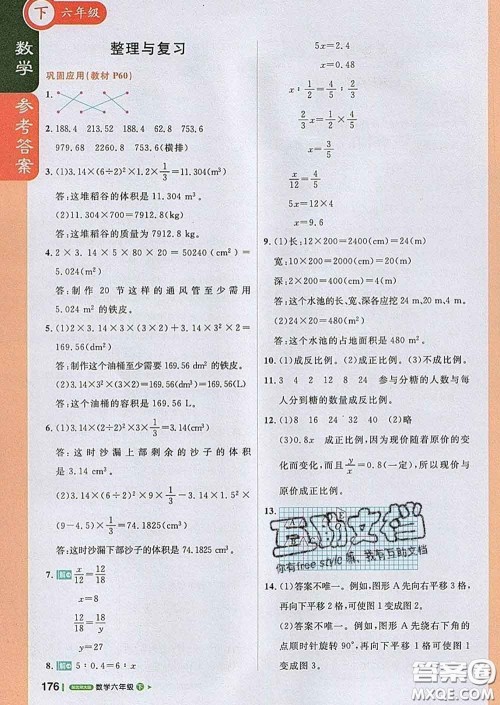 下 六年级
数学
参考答案
整理与复习
巩固应用(教材 P60)
1.
2. 188.4 213.52 188.4 62.8 753.6
979.68 2260.8 753.6(横排)
3. (1)3.14×(6÷2)²×1.2×1/3=11.304(m³)
答:这堆稻谷的体积是 11.304 m³。
(2)11.304×700=7912.8(kg)
答:这堆稻谷的质量为 7912.8 kg。
4. 2×3.14×5×80×20=50240(cm²)=
5.024(m²)
答:制作 20 节这样的通风管至少需用
5.024 m²的铁皮。
5. (1)3.14×3×2×(3×2)+3.14×3²×2=
169.56(dm²)
答:制作这个油桶至少需要 169.56 dm²的铁皮。
(2)3.14×3²×(3×2)=169.56(dm³)=169.56(L)
答:这个油桶的容积是 169.56 L。
6. (1)3.14×(6÷2)²×4×1/3=37.68(cm³)
答:这时沙漏上部剩余的沙子的体积是
37.68 cm³。
(2)3.14×(9÷2)²×9×1/3-3.14×(9÷2÷2)²×
(9-4.5)×1/3=74.1825(cm³)
答:这时沙漏下部沙子的体积是 74.1825 cm³。
7. x/12=12/18
x=8
12/18=18/y
y=27
8. 5∶0.4=6∶x
176 数学六年级 下
5x=2.4
x=0.48
x∶1/2=4/5∶1/2
x=4/5
x/12=4/5
5x=12×4
x=9.6
9. (1)长:12×200=2400(cm)=24(m)
宽:10×200=2000(cm)=20(m)
深:2×200=400(cm)=4(m)
答:这个水池的长、宽、深各应挖 24 m、20 m、4 m。
(2)24×20=480(m²)
答:这个水池的占地面积是 480 m²。
10. (1)成反比例。 (2)成正比例。 (3)不成比例。
11. 3 4 2 12 8 24 参与分糖的人数与每
人分到糖的数量成反比例。
12. (1)8 16 24 32 40 (2)略
(3)0.8x 成正比例,因为现价随着原价的变
化而变化,而且y/x=0.8(一定),所以现价与
原价成正比例。
13.
互助文档
你有free style 嘛,我有互助文档
14. (1)答案不唯一。例如:图形 A 先向右平移 3 格,
再向下平移 2 格,可使图 1 变成图 2。
(2)答案不唯一。例如:图形 A 先绕右下角的
点顺时针旋转 90°,再向下平移 1 格,可使图
答案圈
MXQE.COM